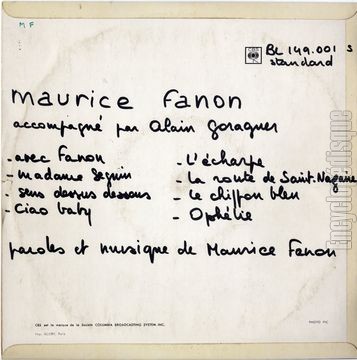 M F
CBS
BL 149.001 S
standard
maurice Fanon
accompagné par Alain Goraguer
- avec Fanon
- L'écharpe
- madame Seguin
- La route de Saint-Nazaire
- sens dessus dessous
- Le chiffon bleu
- Ciao baby
- Ophélie
paroles et musique de Maurice Fanon
CBS est la marque de la Société COLUMBIA BROADCASTING SYSTEM INC.
PHOTO PIC
Encyclopédisque